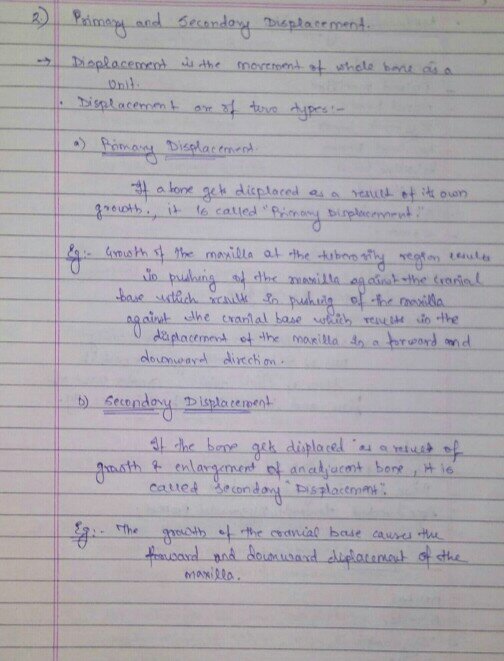 2) Primary and Secondary Displacement.
→ Displacement is the movement of whole bone as a
Unit.
. Displacement are of two types:-
a) Primary Displacement.
If a bone gets displaced as a result of its own
growth., it is called "Primary Displacement."
Eg:- Growth of the maxilla at the tuberosity region results
in pushing of the maxilla against the cranial
base which results in pushing of the maxilla
against the cranial base which results in the
displacement of the maxilla in a forward and
downward direction.
b) Secondary Displacement
If the bone gets displaced as a result of
growth & enlargement of an adjacent bone, it is
called secondary "Displacement".
Eg:- The growth of the cranial base causes the
forward and downward displacement of the
maxilla.